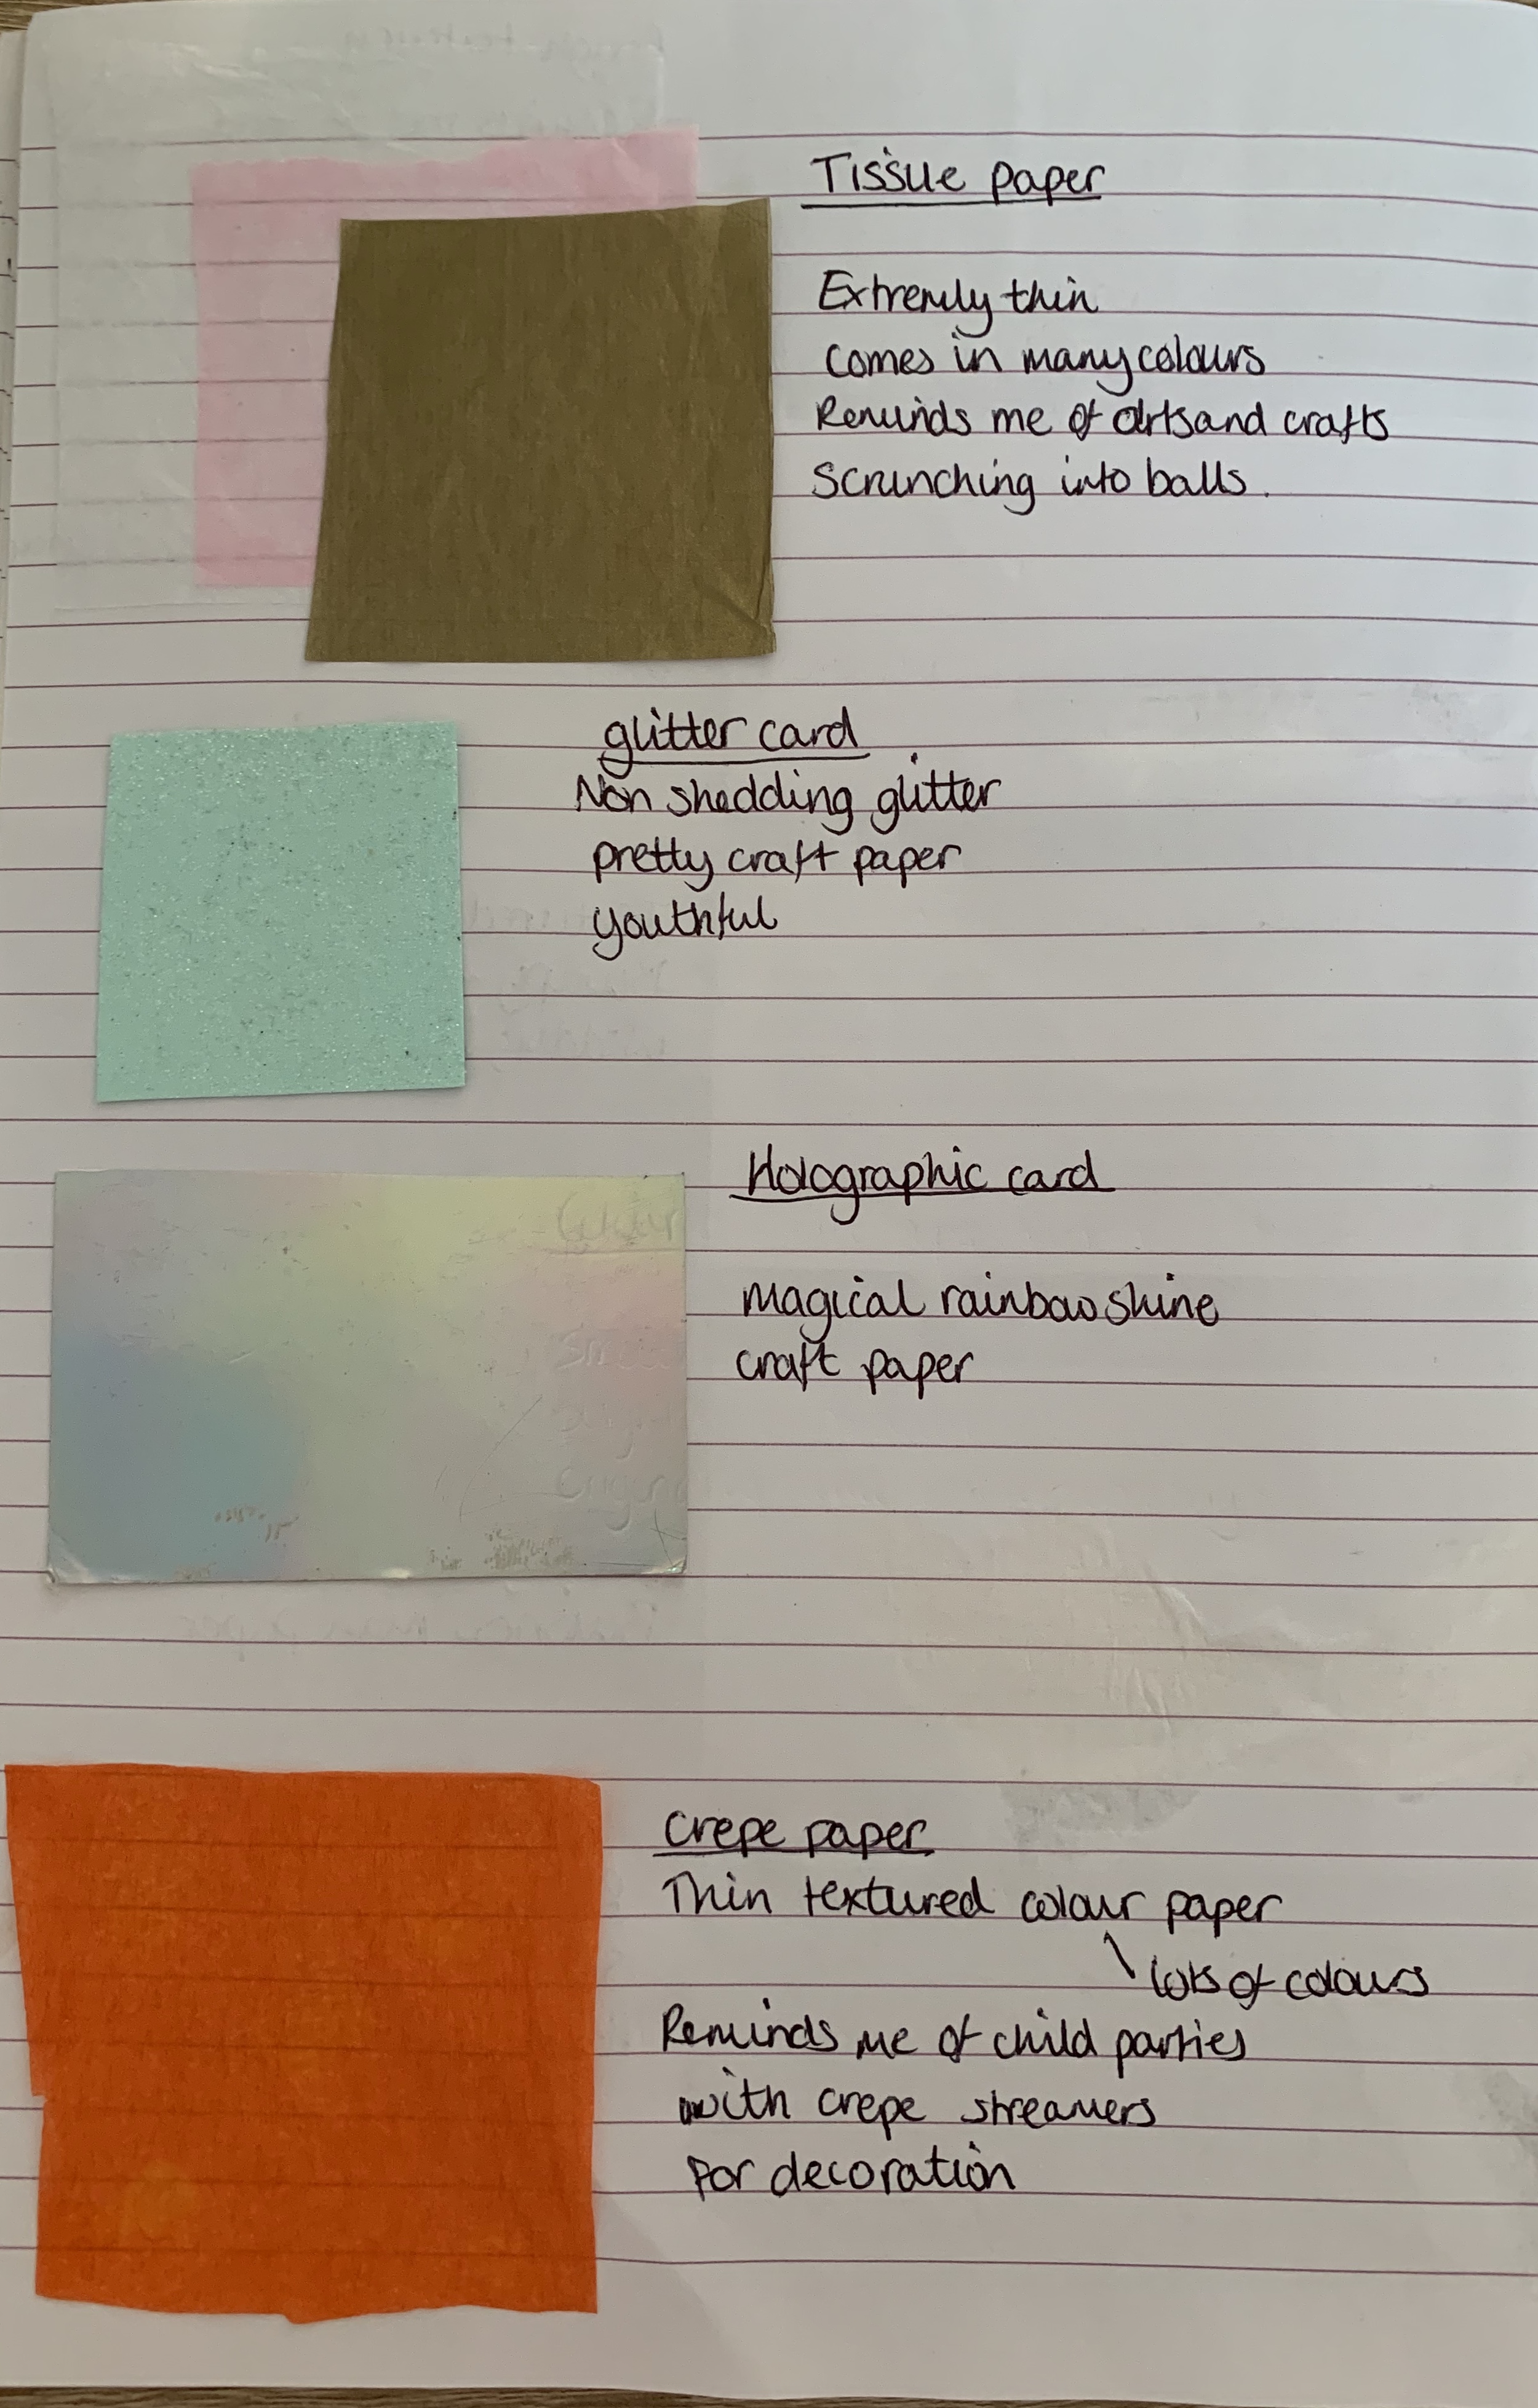 Tissue paper
Extremly thin
comes in many colours
Reminds me of arts and crafts
Scrunching into balls.
glitter card
Non shedding glitter
pretty craft paper
youthful
Holographic card
magical rainbow shine
craft paper
Crepe paper
Thin textured colour paper
lots of colours
Reminds me of child parties
with crepe streamers
for decoration